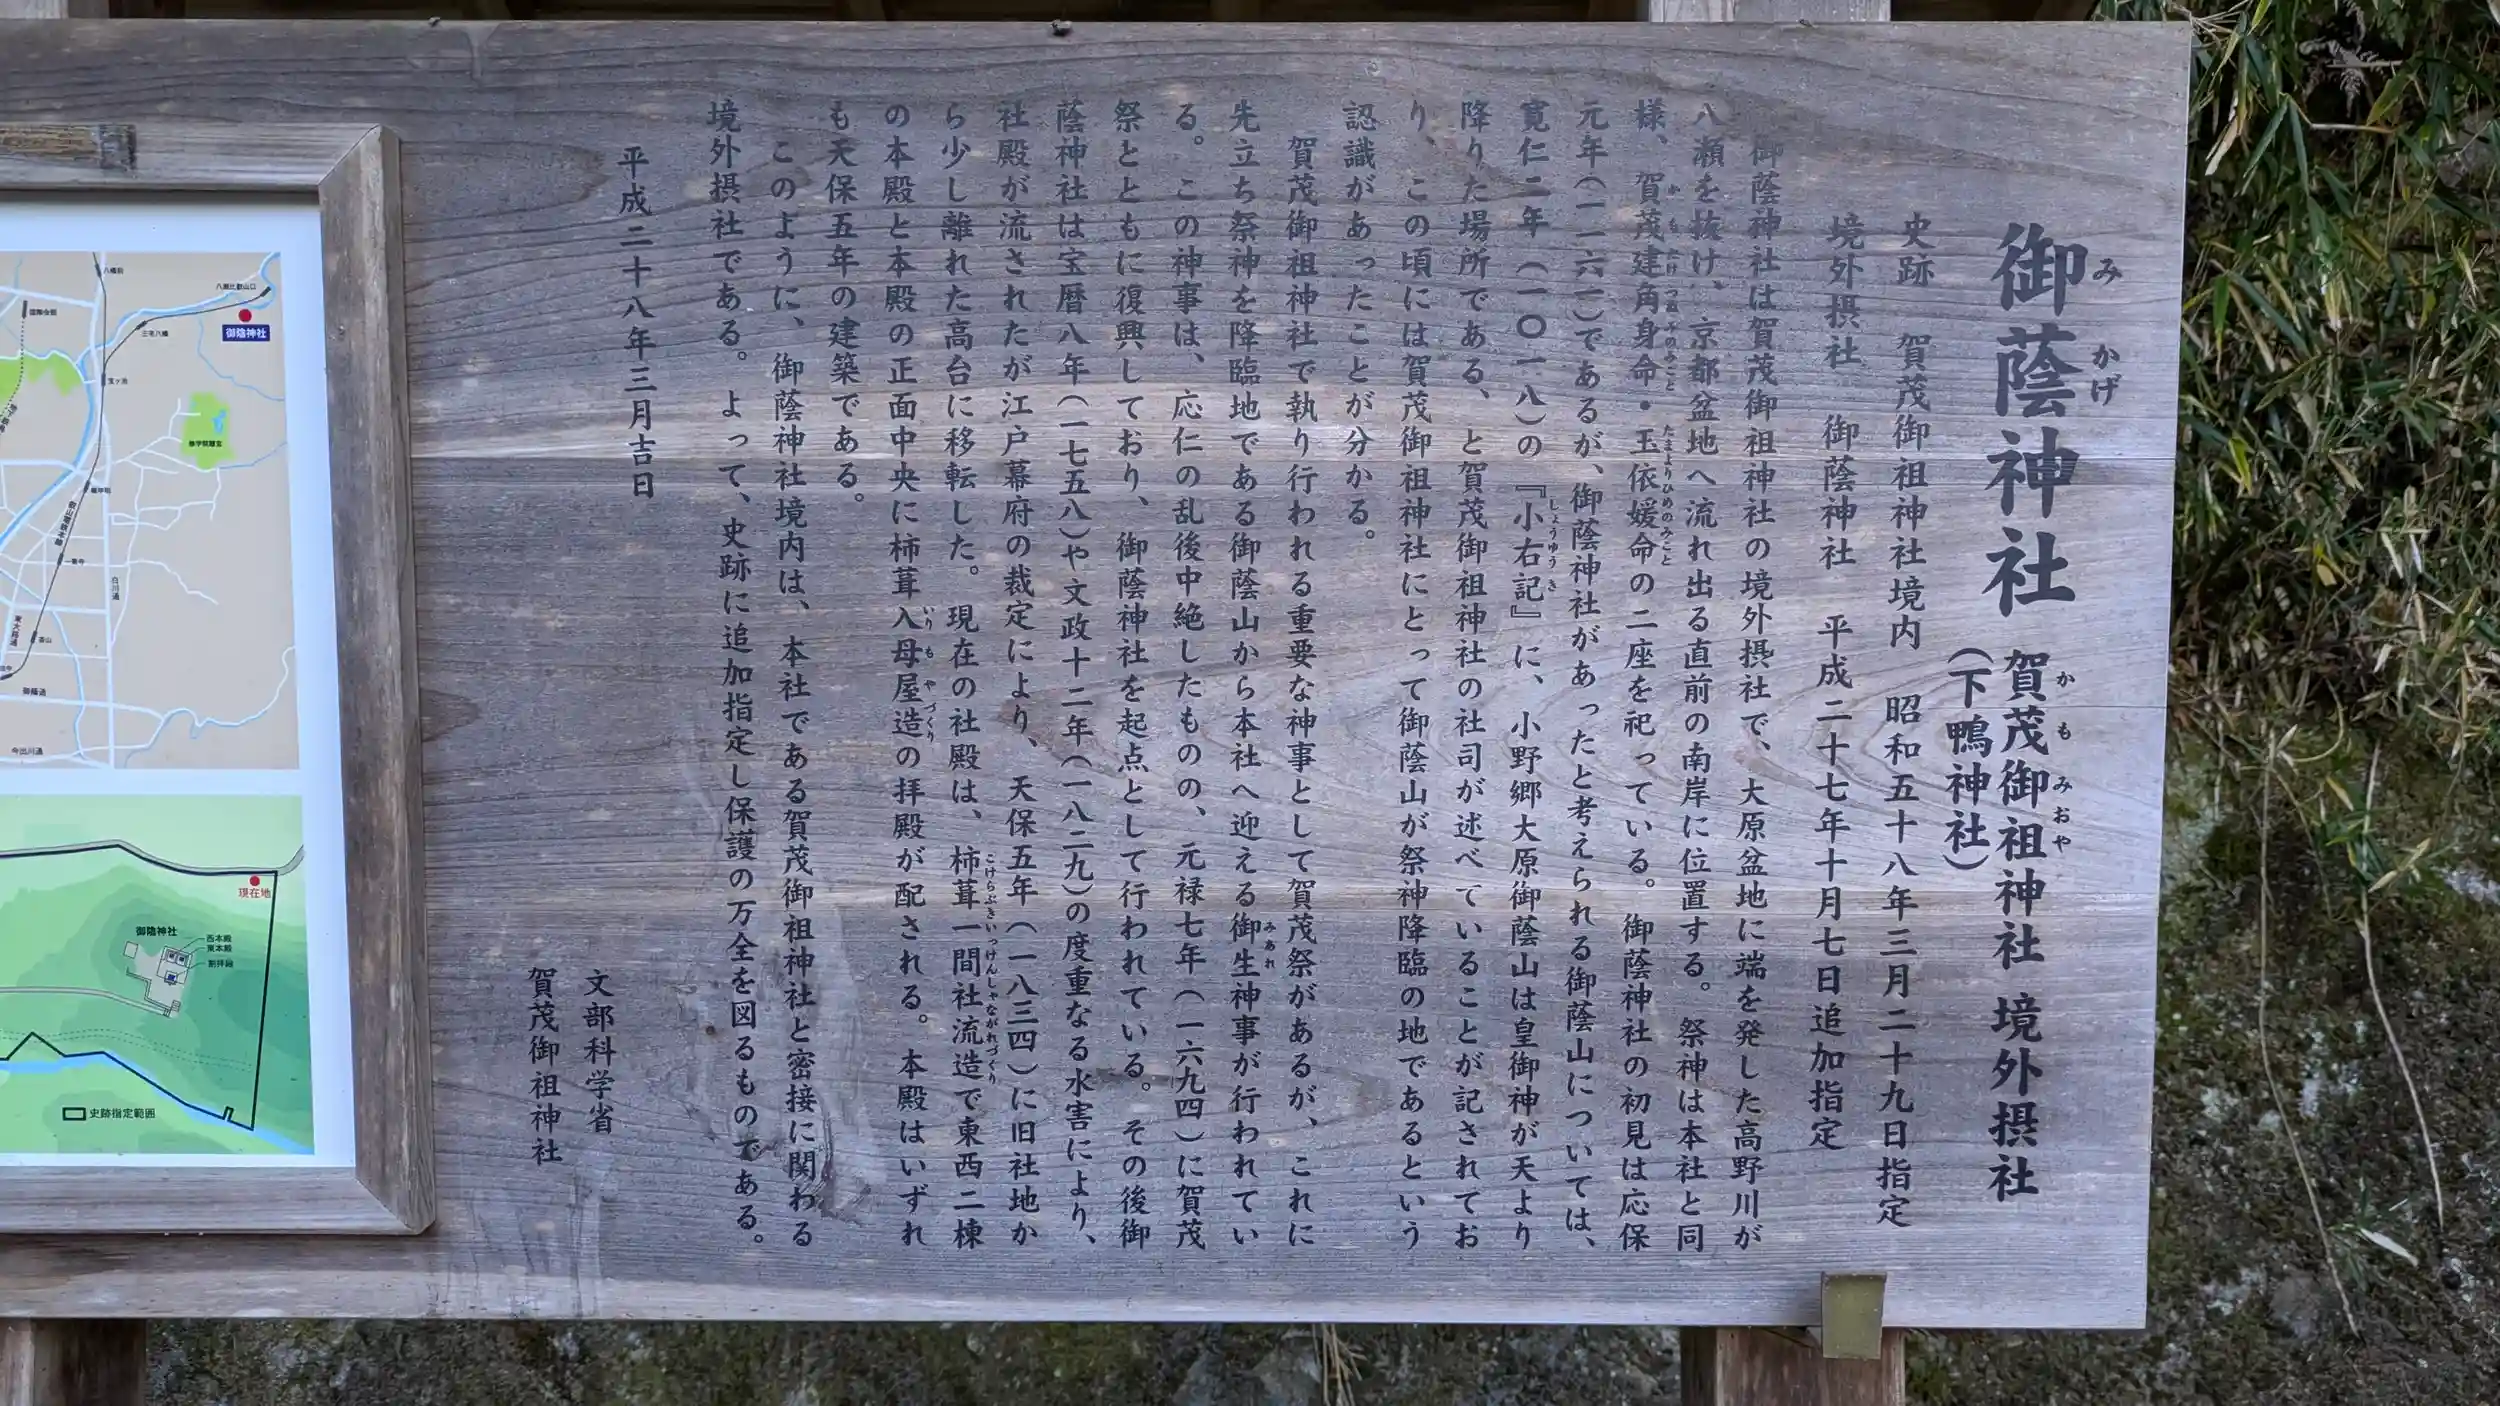 御蔭神社 賀茂御祖神社 境外摂社
(下鴨神社)
み かげ
かも みおや
史跡 賀茂御祖神社境内 昭和五十八年三月二十九日指定
境外摂社 御蔭神社 平成二十七年十月七日追加指定
御蔭神社は賀茂御祖神社の境外摂社で、大原盆地に端を発した高野川が
八瀬を抜け、京都盆地へ流れ出る直前の南岸に位置する。祭神は本社と同
様、賀茂建角身命・玉依媛命の二座を祀っている。御蔭神社の初見は応保
かもたけつねみのみこと たまよりひめのみこと
元年(一一六一)であるが、御蔭神社があったと考えられる御蔭山については、
寛仁二年(一〇一八)の『小右記』に、小野郷大原御蔭山は皇御神が天より
しょうゆうき
降りた場所である、と賀茂御祖神社の社司が述べていることが記されてお
り、この頃には賀茂御祖神社にとって御蔭山が祭神降臨の地であるという
認識があったことが分かる。
賀茂御祖神社で執り行われる重要な神事として賀茂祭があるが、これに
先立ち祭神を降臨地である御蔭山から本社へ迎える御生神事が行われてい
みあれ
る。この神事は、応仁の乱後中絶したものの、元禄七年(一六九四)に賀茂
祭とともに復興しており、御蔭神社を起点として行われている。その後御
蔭神社は宝暦八年(一七五八)や文政十二年(一八二九)の度重なる水害により、
社殿が流されたが江戸幕府の裁定により、天保五年(一八三四)に旧社地か
ら少し離れた高台に移転した。現在の社殿は、柿葺一間社流造で東西二棟
こけらぶきいっけんしゃながれづくり
の本殿と本殿の正面中央に柿葺入母屋造の拝殿が配される。本殿はいずれ
いりもやづくり
も天保五年の建築である。
このように、御蔭神社境内は、本社である賀茂御祖神社と密接に関わる
境外摂社である。よって、史跡に追加指定し保護の万全を図るものである。
平成二十八年三月吉日
文部科学省
賀茂御祖神社
八幡前
八瀬比叡山口
御蔭神社
国際会館
三宅八幡
宝ヶ池
修学院離宮
修学院
叡山電鉄本線
一乗寺
白川通
東大路通
茶山
御蔭通
今出川通
現在地
御蔭神社
西本殿
東本殿
史跡指定範囲